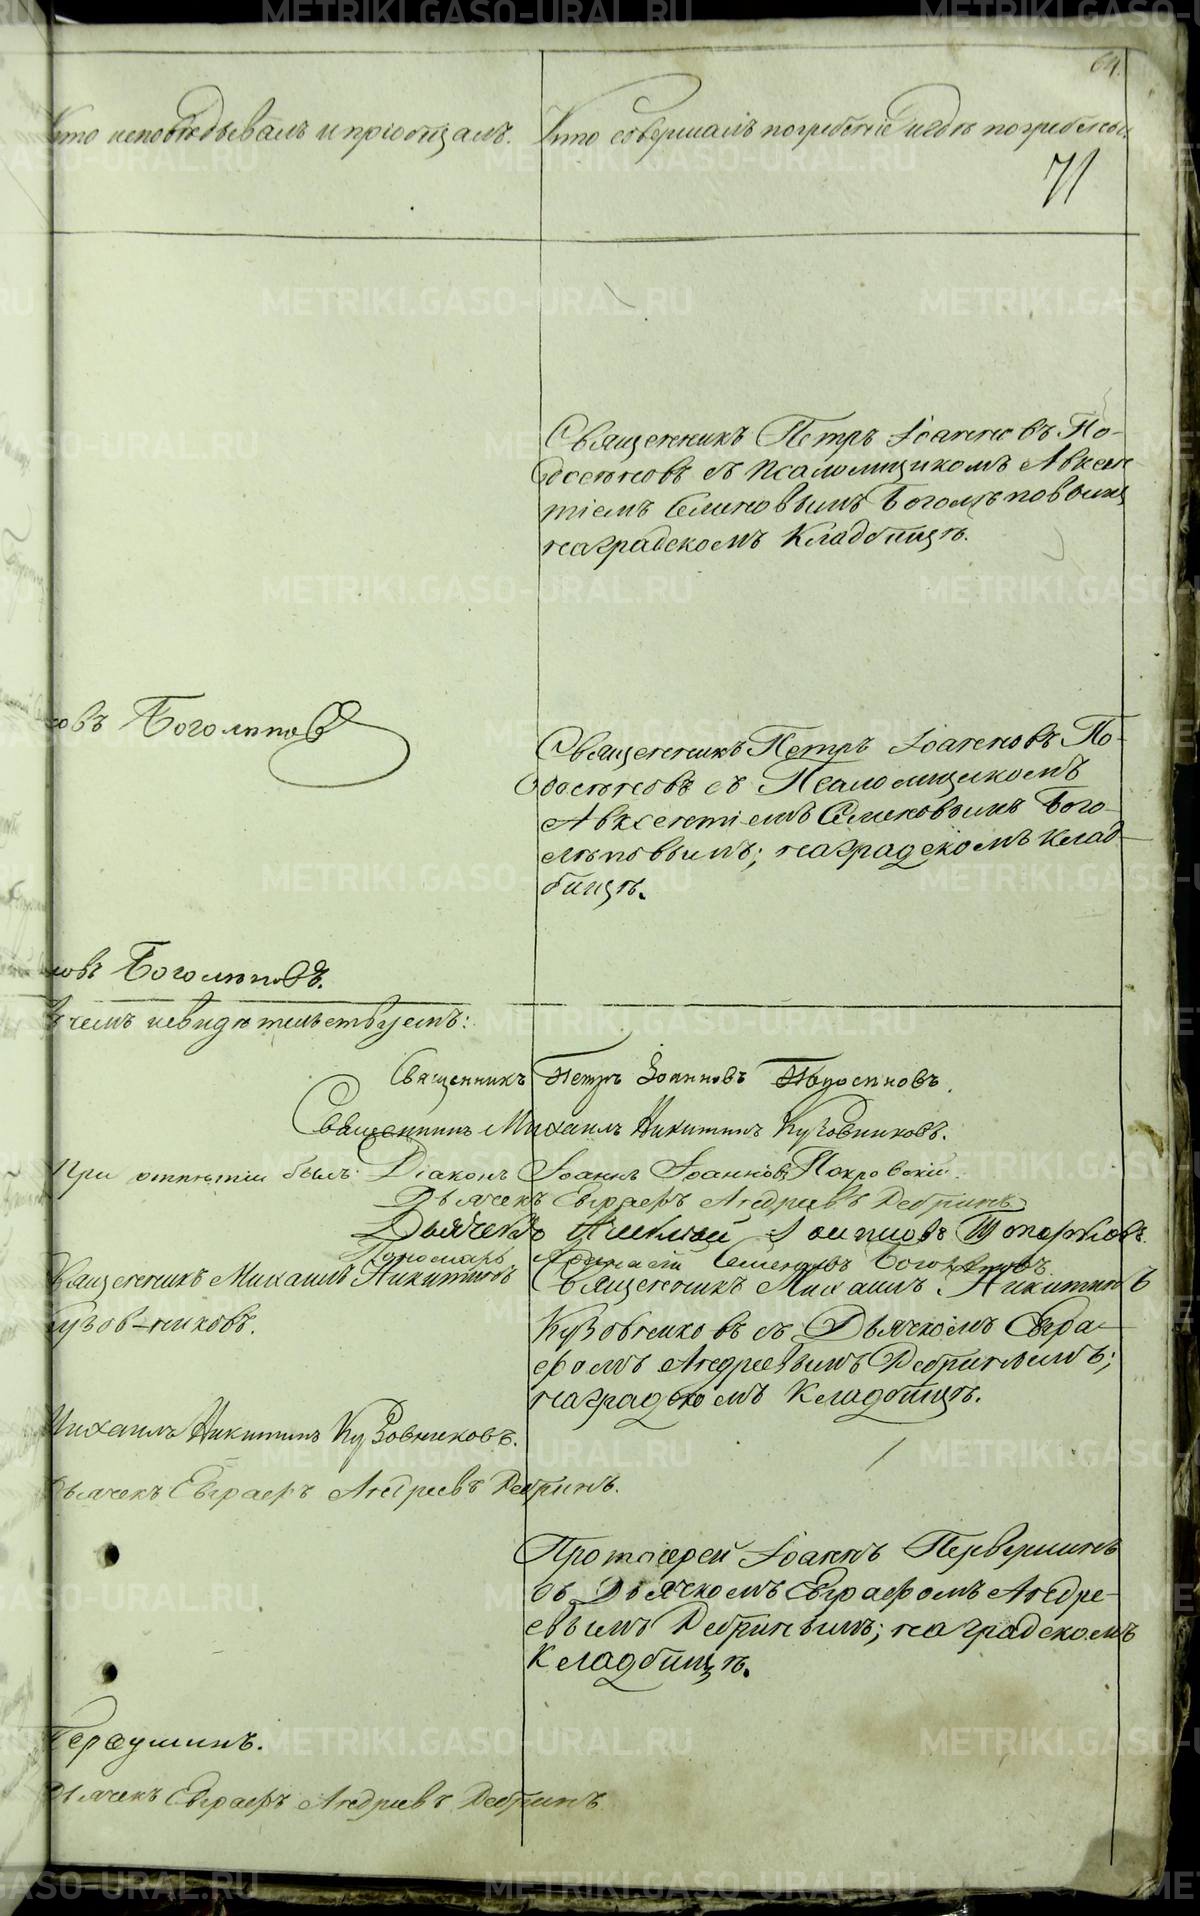 64.
Кто исповѣдывалъ и пріобщалъ. Кто совершалъ погребеніе и гдѣ погребены
71
Священникъ Петръ Іоанновъ По-
досеновъ съ псаломщикомъ Авксен
тіемъ Семеновымъ Боголѣповымъ
на градскомъ Кладбищѣ.
новъ Боголѣпов
Священникъ Петръ Іоанновъ По-
досеновъ съ Псаломщикомъ
Авксентіемъ Семеновымъ Бого-
лѣповымъ; на градскомъ клад-
бищѣ.
новъ Боголѣповъ.
въ чемъ свидѣтельствуемъ:
Священникъ Петръ Іоанновъ Подосеновъ.
Священникъ Михаилъ Никитинъ Кузовниковъ.
При отпѣтіи былъ Діаконъ Іоаннъ Іоанновъ Покровскій.
Дьячекъ Евграфъ Андреевъ Дебринъ
Дьячекъ Топорковъ.
Пономарь Семеновъ Боголѣповъ
Священникъ Михаилъ Никитинъ
Кузовниковъ.
Священникъ Михаилъ Никитинъ
Кузовниковъ съ Дьячкомъ Евгра-
фомъ Андреевымъ Дебринымъ;
на градскомъ Кладбищѣ.
Михаилъ Никитинъ Кузовниковъ.
Дьячекъ Евграфъ Андреевъ Дебринъ.
Протоіерей Іоаннъ Первушинъ
съ Дьячкомъ Евграфомъ Андре-
евымъ Дебринымъ; на градскомъ
Кладбищѣ.
Первушинъ.
Дьячекъ Евграфъ Андреевъ Дебринъ
METRIKI.GASO-URAL.RU